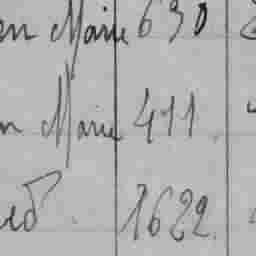 en Marie 630
n Marie 411
1622